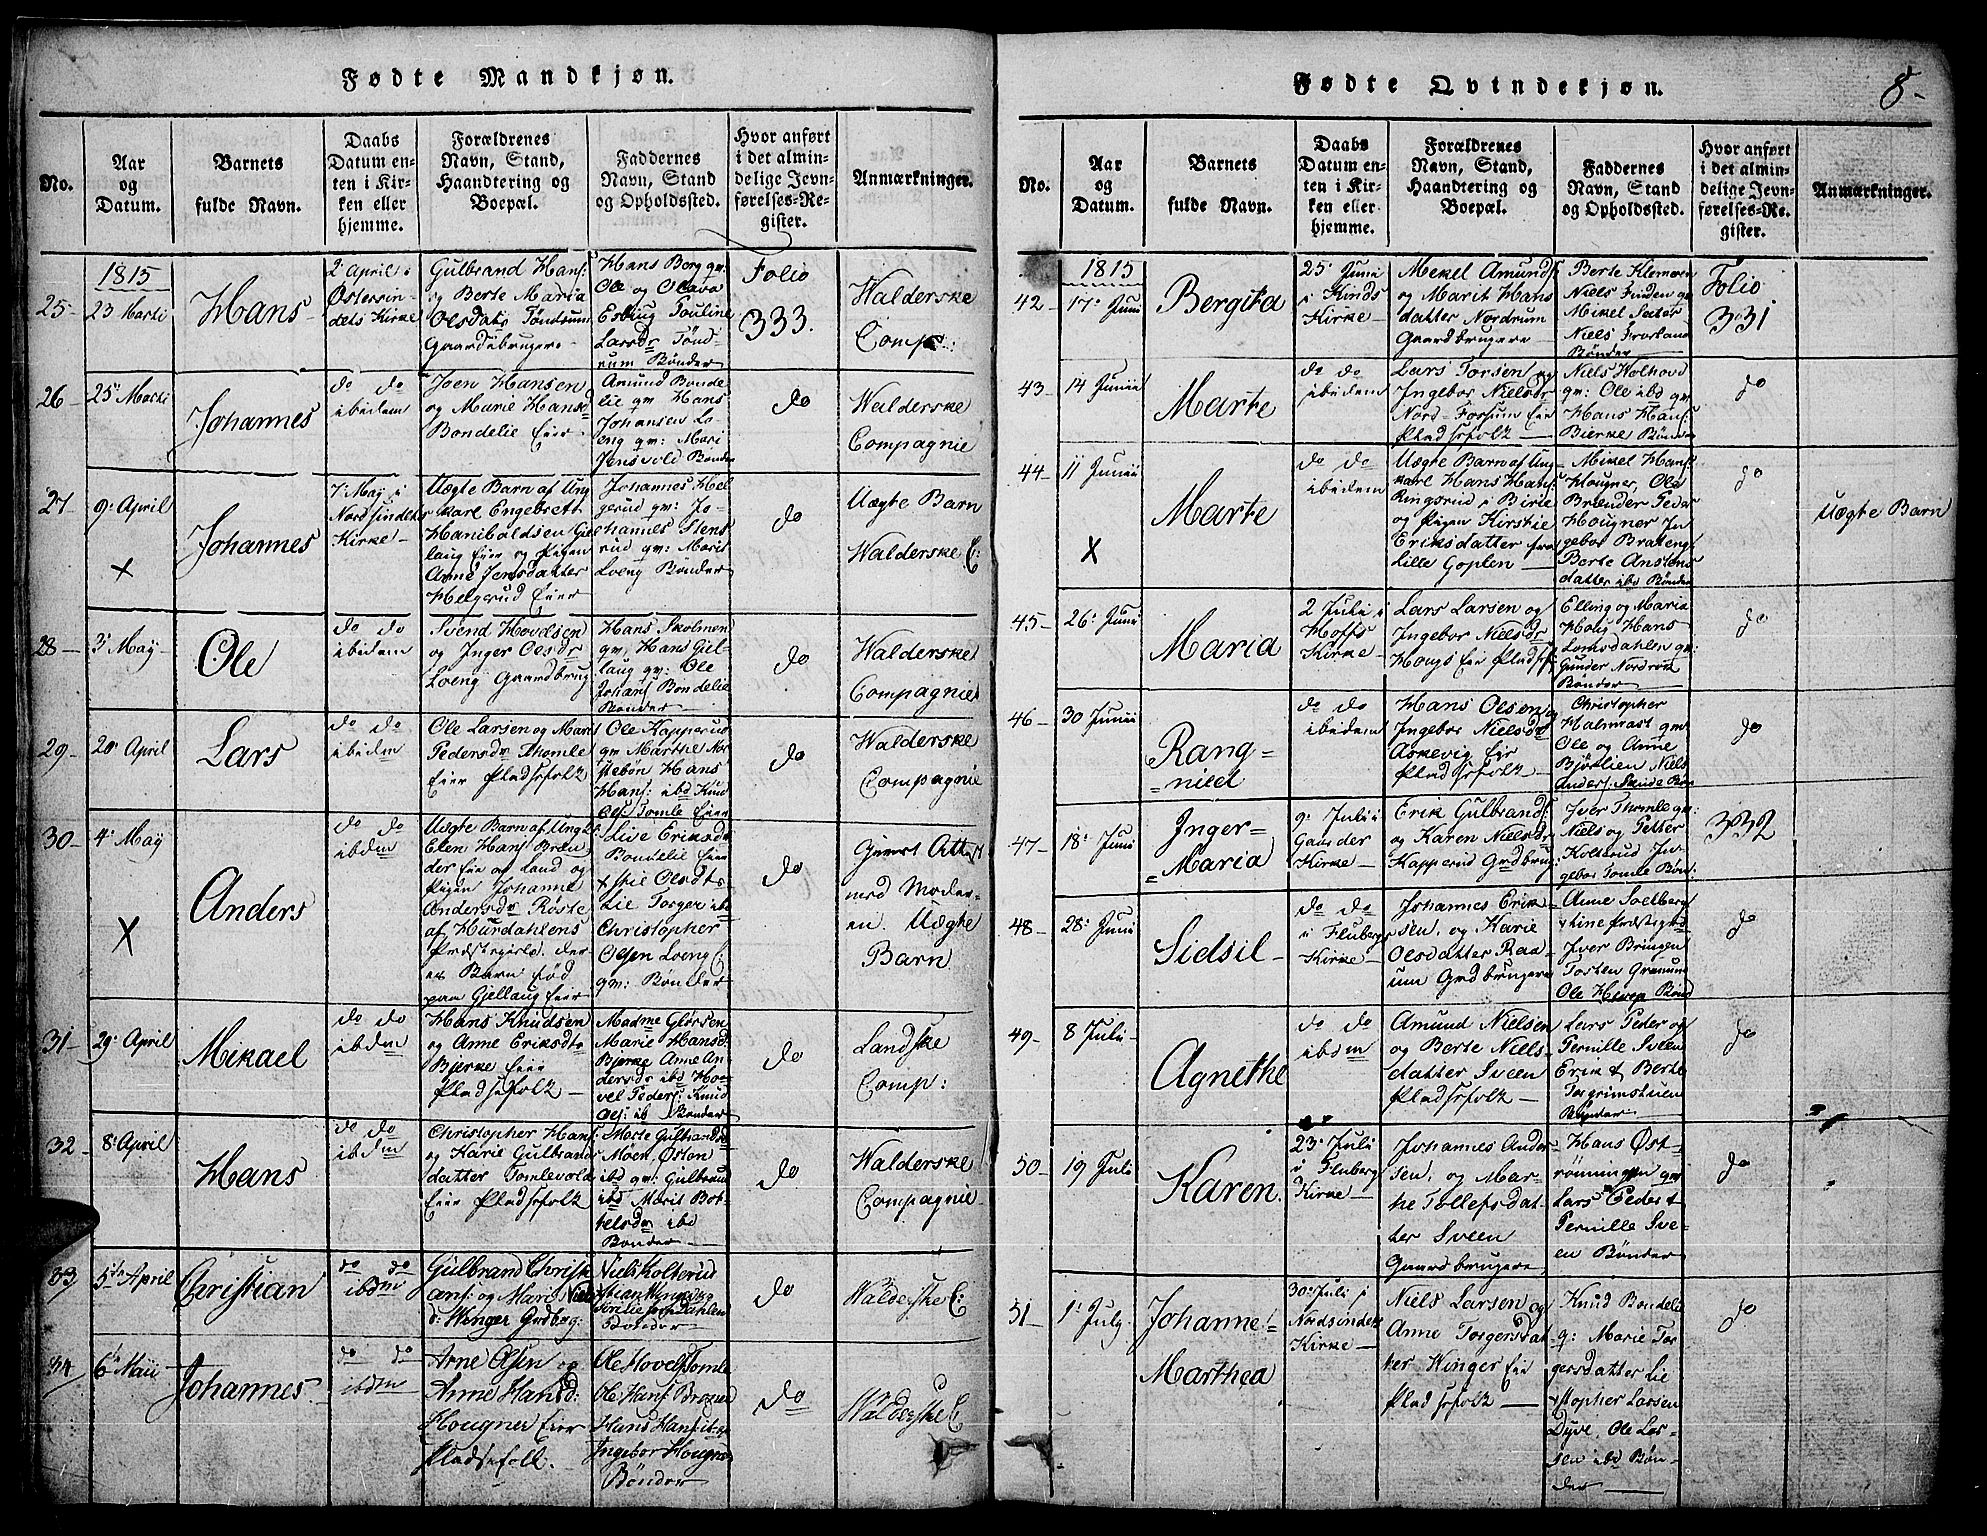 Fødte Mandkjøn.
No.
Aar
og
Datum.
Barnets
fulde Navn.
Daabs
Datum en-
ten i Kir-
ken eller
hjemme.
Forældrenes
Navn, Stand,
Haandtering og
Boepæl.
Faddernes
Navn, Stand
og Opholdssted.
Hvor anført
i det almin-
delige Jevn-
førelses-Re-
gister.
Anmærkninger.
1815
25
23 Marti
Hans
2 April i
Østersin-
dets Kirke
Gulbrand Hans:
og Berte Maria
Olsdatr Tøndrum
Gaardebrugere
Hans Berg gv:
Ole og Olava
Esbug Pouline
Larsdr Tønd-
rum Bønder
Folio
333.
Walderske
Comp:
26
25 Marti
Johannes
do do
ibidem
Joen Hansen
og Marie Hansd
Bondelie Eier
Amund Bonde
lie gv Hans
Johansen Lo
eng gv: Mari
Jensvold Bønder
do
Walderske
Compagnie
27
9 April
x
Johannes
7 May i
Nordsindets
Kirke
Uægte Barn af Ung
karl Engebrett
Hanibaldsen Giel
laug Eier og Pigen
Anne Jensdatter
Helgerud Eier
Johannes Hel
gerud gv: Jo-
hannes Stens
rud gv: Marit
Loeng Bønder
do
Uægte Barn
Walderske C:
28
3 May
Ole
do do
ibidem
Svend Hovelsen
og Inger Olsdr
Loeng Gaardbrug
Hans Skolmen
gv, Hans Giel-
laug gv: Ole
Johans Bondelie
Bønder
do
Walderske
Compagnie
29
20 April
Lars
do do
ibidm
Ole Larsen og Mari
Pedersdr Thomle
Eier Pladsefolk
Ole Kapperud
gv Marthe Nor
stebøn Hans
Hans: ibd Knud
Ols Tomle Eier
do
Walderske
Compagnie
30
4 May
X
Anders
do do
ibdm
Uægte Barn af Ungk
Elen Hans Bræn
der Eie og Land og
Pigen Johanne
Andersdr Røste
af Hurdahlens
Præstegield, der-
es Barn fød
paa Gjellaug Eier
Live Eriksdr
Bondelie Eier
Olsdtr
Lie Torger ibd
Christopher
Olsen Loeng
gv: Bønder
do
Givet Attest
med Moder-
en. Uægte
Barn
31
29 April
Mikael
do do
ibdm
Hans Knudsen
og Anne Eriksdtr
Bjerke Eier
Pladsefolk
Madme Glørsen
Marie Hansd:
Bjerke Anne An
dersdr ibd Ho-
vel Peders: Knud
Ols: ib Bønder
do
Landske
Comp:
32
8 April
Hans
do do
ibdm
Christopher Hans:
og Karie Gulbrands
datter Tomlevold
Eier Pladsefolk
Marte Gulbrandsd
Moen, Østen
ibd gv: Gulbrand
ibd Marit Bot-
telsdr ibd
Bønder
do
Walderske
Compagnie
33
5te April
Christian
do do
ibdm
Gulbrand Christi
ans: og Mari Niels
d: Winger Grdbrg:
Niels Kolterud
do
Walderske C:
34
6te Maii
Johannes
do do
ibdm
Arne Olsen og
Anne Hansd:
Hougner Eier
Pladsefolk.
Ole Hovels Tomle
Ole Hans
Hans Hans ib
Ingebor Hougner
Bønder
do
Walderske C
Fødte Qvindekjøn.
8-
No.
Aar
og
Datum.
Barnets
fulde Navn.
Daabs
Datum en-
ten i Kir-
ken eller
hjemme.
Forældrenes
Navn, Stand,
Haandtering og
Boepæl.
Faddernes
Navn, Stand
og Opholdssted.
Hvor anført
i det almin-
delige Jevn-
førelses-Re-
gister.
Anmærkninger.
1815
42
17 Juni
Bergita
25 Juni
i Kinds
Kirke
Mekel Amunds
og Marit Hans
datter Nordrum
Gaardbrugere
Berte Klemmen
Niels Linden gv
Mikel Sæter
Niels
Bønder
Folio
331
43
14 Junii
Marte
do do
ibidem
Lars Torsen og
Ingebor Nielsdr
Nord-Fossum Eier
Pladsefolk
Niels Holhovd
gv: Ole ibd gv
Hans Hans
Bierke Bønder
do
44
11 Junii
X
Marte
do do
ibidem
Uægte Barn af Ung-
karl Hans Hans
Ringsrud i Birie
og Pigen Kirstie
Eriksdatter fra
Lille Goplen
Mikel Hans:
Hougner, Ole
Brænder Peder
Hougner In
gebor Brateng
Berte Anstens
datter ibd Bønder
do
Uægte Barn
45
26 Juni
Maria
2 Juli i
Hoffs
Kirke
Lars Larsen og
Ingebor Nielsdr
Hougs Eier Pladsf
Elling og Maria
Houg Hans
Lomsdahlen gv:
Gunder Nordrok
Bønder
do
46
30 Junii
Rang-
nild
do do
ibidem
Hans Olsen og
Ingebor Nielsdr
Askevig Eir
Pladsefolk
Christopher
Halmrast gv
Ole og Anne
Bjørlien Niels
Anders: Bøn
do
47
18 Juni
Inger-
Maria
9 Juli i
Gausder
Kirke
Erik Gulbrands
og Karen Nielsdr
Kapperud Grdbrug
Iver Thomle gv:
Niels og Petter
Kolterud In-
gebor Tomle Bønd.
332
48
28 Juni
Sidsil
do do
i Fluberg
Kirke
Johannes Erik-
sen, og Karie
Olsdatter Raa
um Grdbrugere
Anne Soelberg
Iver Bringen
Torsten Grønum
Ole Bønd
do
49
8 Juli
Agnethe
do do
ibdm
Amund Nielsen
og Berte Niels-
datter Sveen
Pladsefolk
Lars Peder og
Pernille Sveen
Erik & Berte
Torgrimstuen
Bønder
do
50
19 Juli
Karen.
23 Juli
i Fluberg
Kirke
Johannes Ander-
sen, og Mar-
the Tollefsdat-
ter Sveen
Gaardbrugere
Hans Øst-
rønningen gv
Lars Peder &
Pernille Sve-
en Bønder
do
51
1 July
Johanne
Marthea
30 Juli i
Nordsindets
Kirke
Niels Larsen og
Anne Torgersdat
ter Winger Eier
Pladsefolk
Knud Bondelie
g: Marie Tor
gersdatter Lie
Xstopher Larsen
Dyve, Ole Lar-
sen ibd Bøn-
der
do